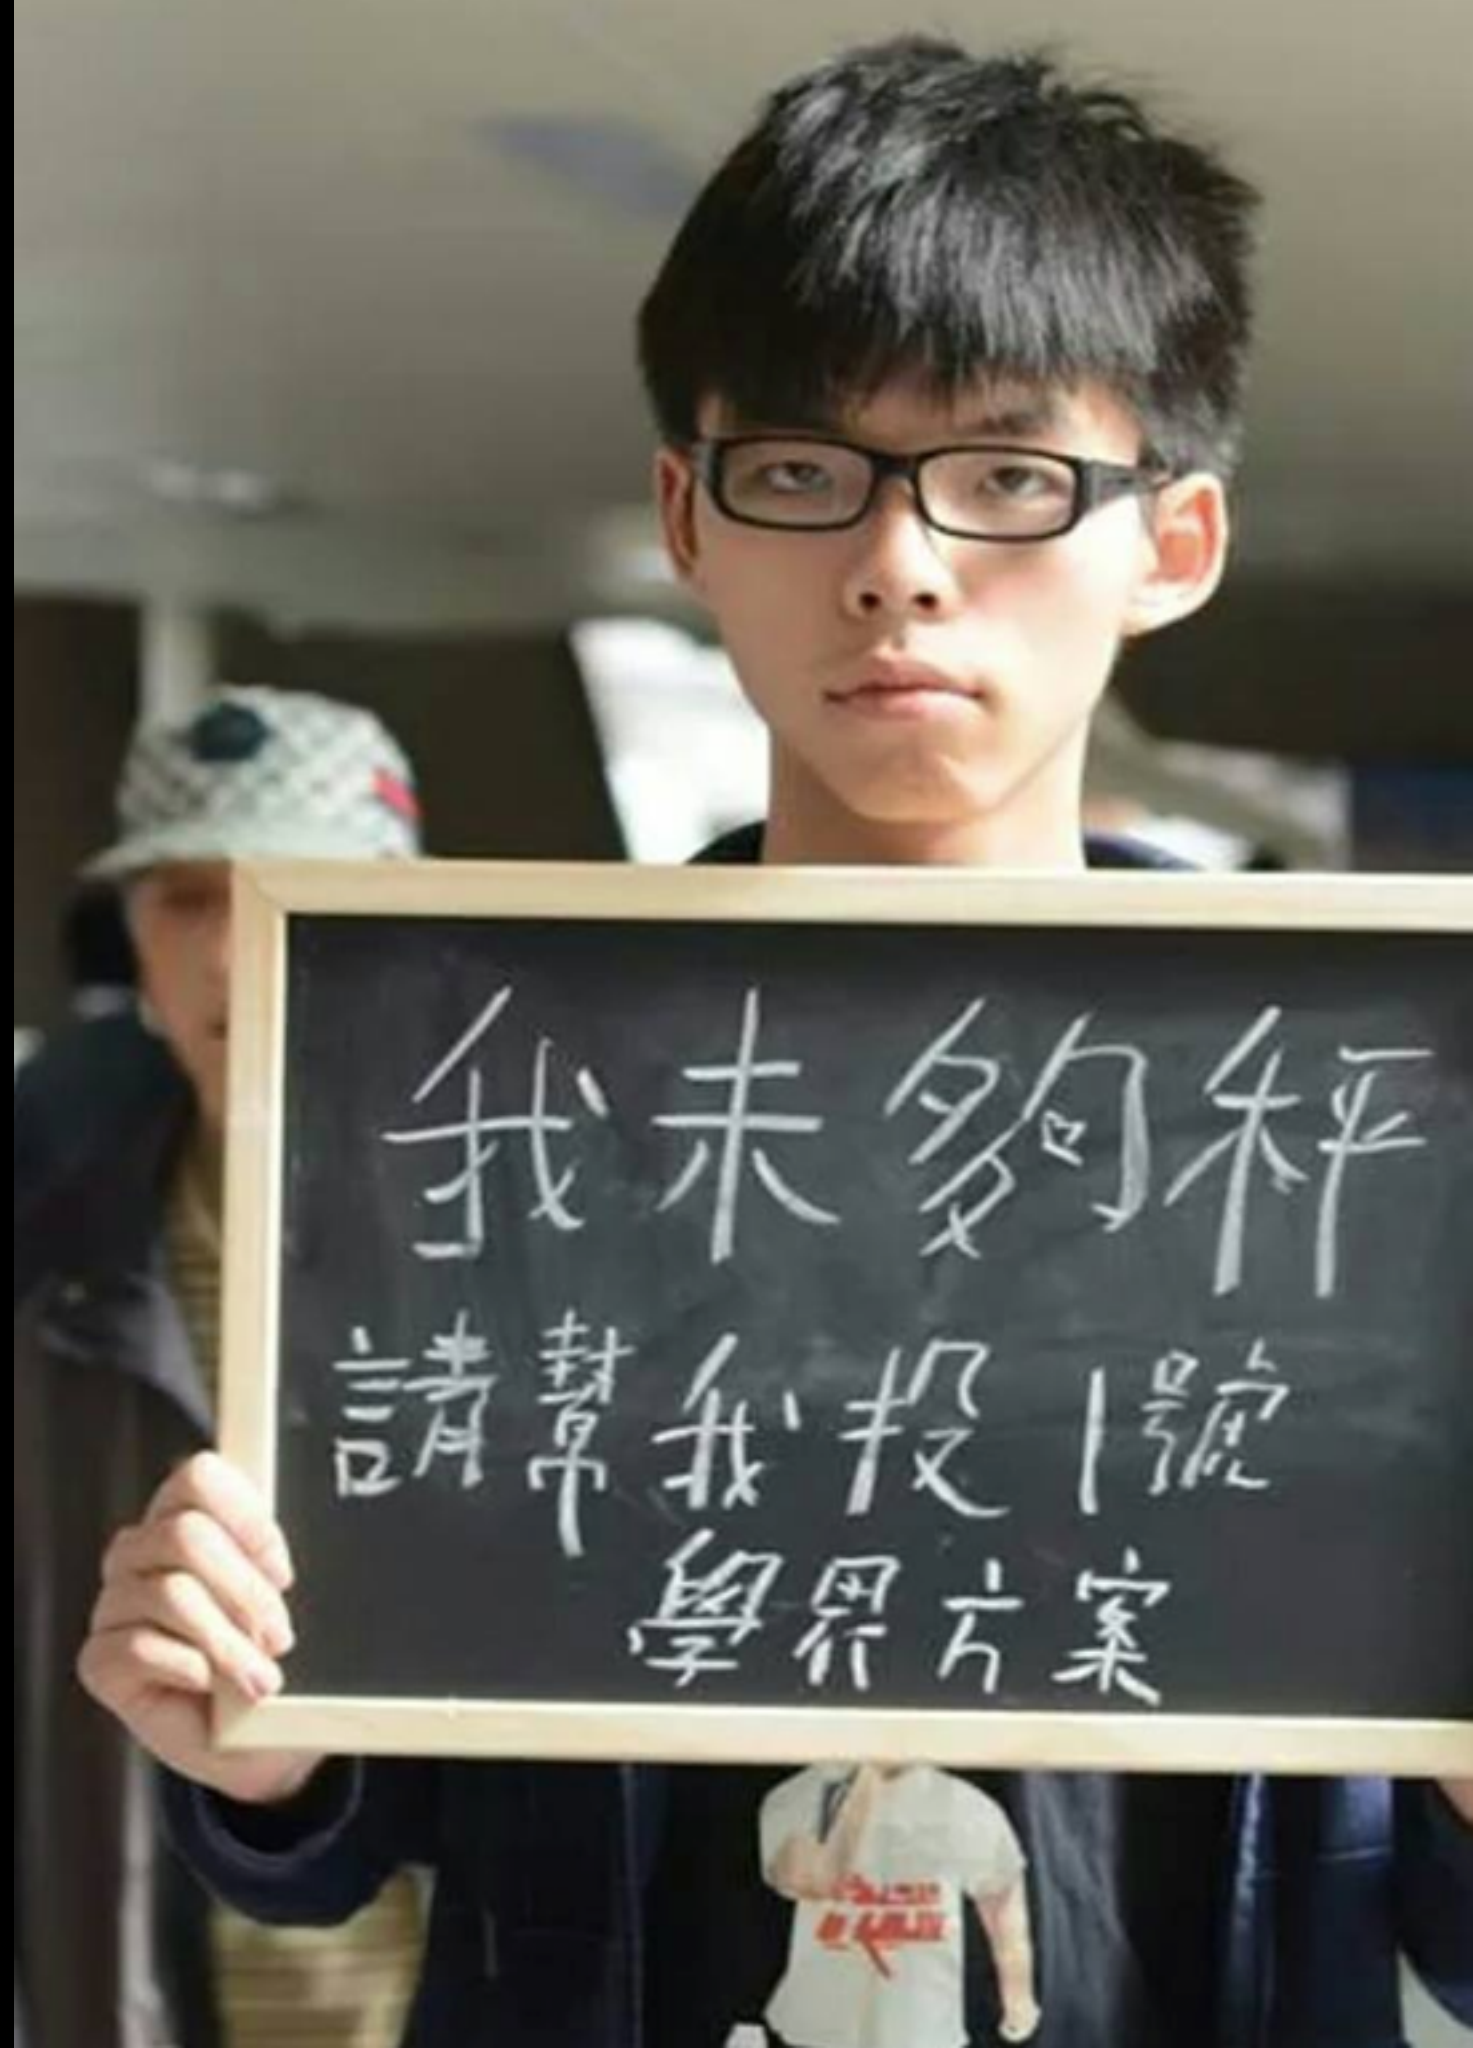 我未夠秤
請幫我投1號
學界方案